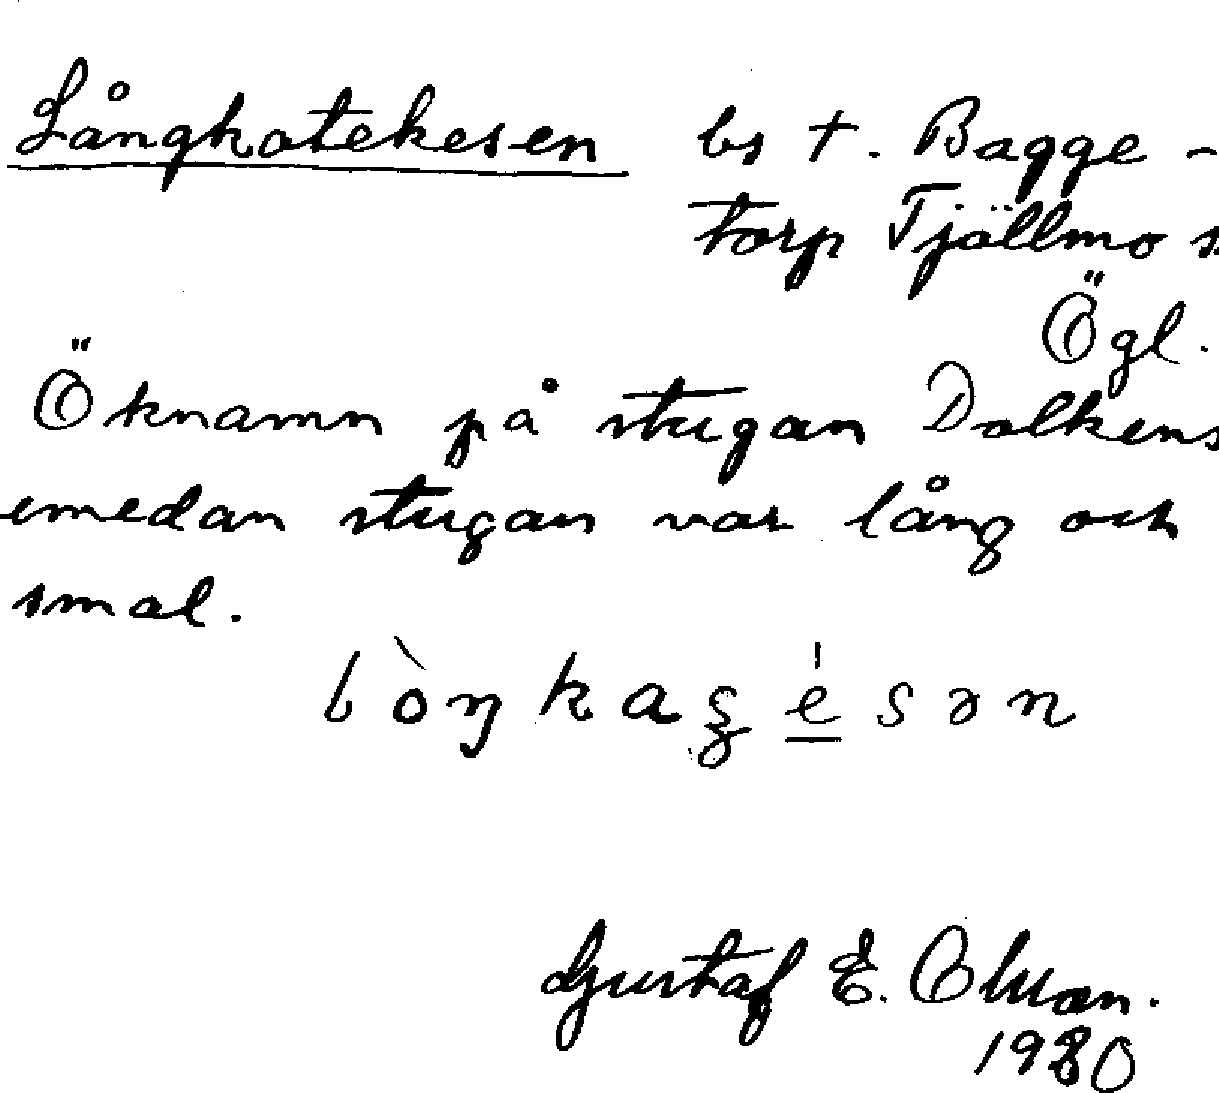 Långkatekesen bs t. Bagge-
torp Tjällmo s
Ögl.
Öknamn på stugan Dalkens
emedan stugan var lång och
smal.
Gustaf E. Olson.
1980